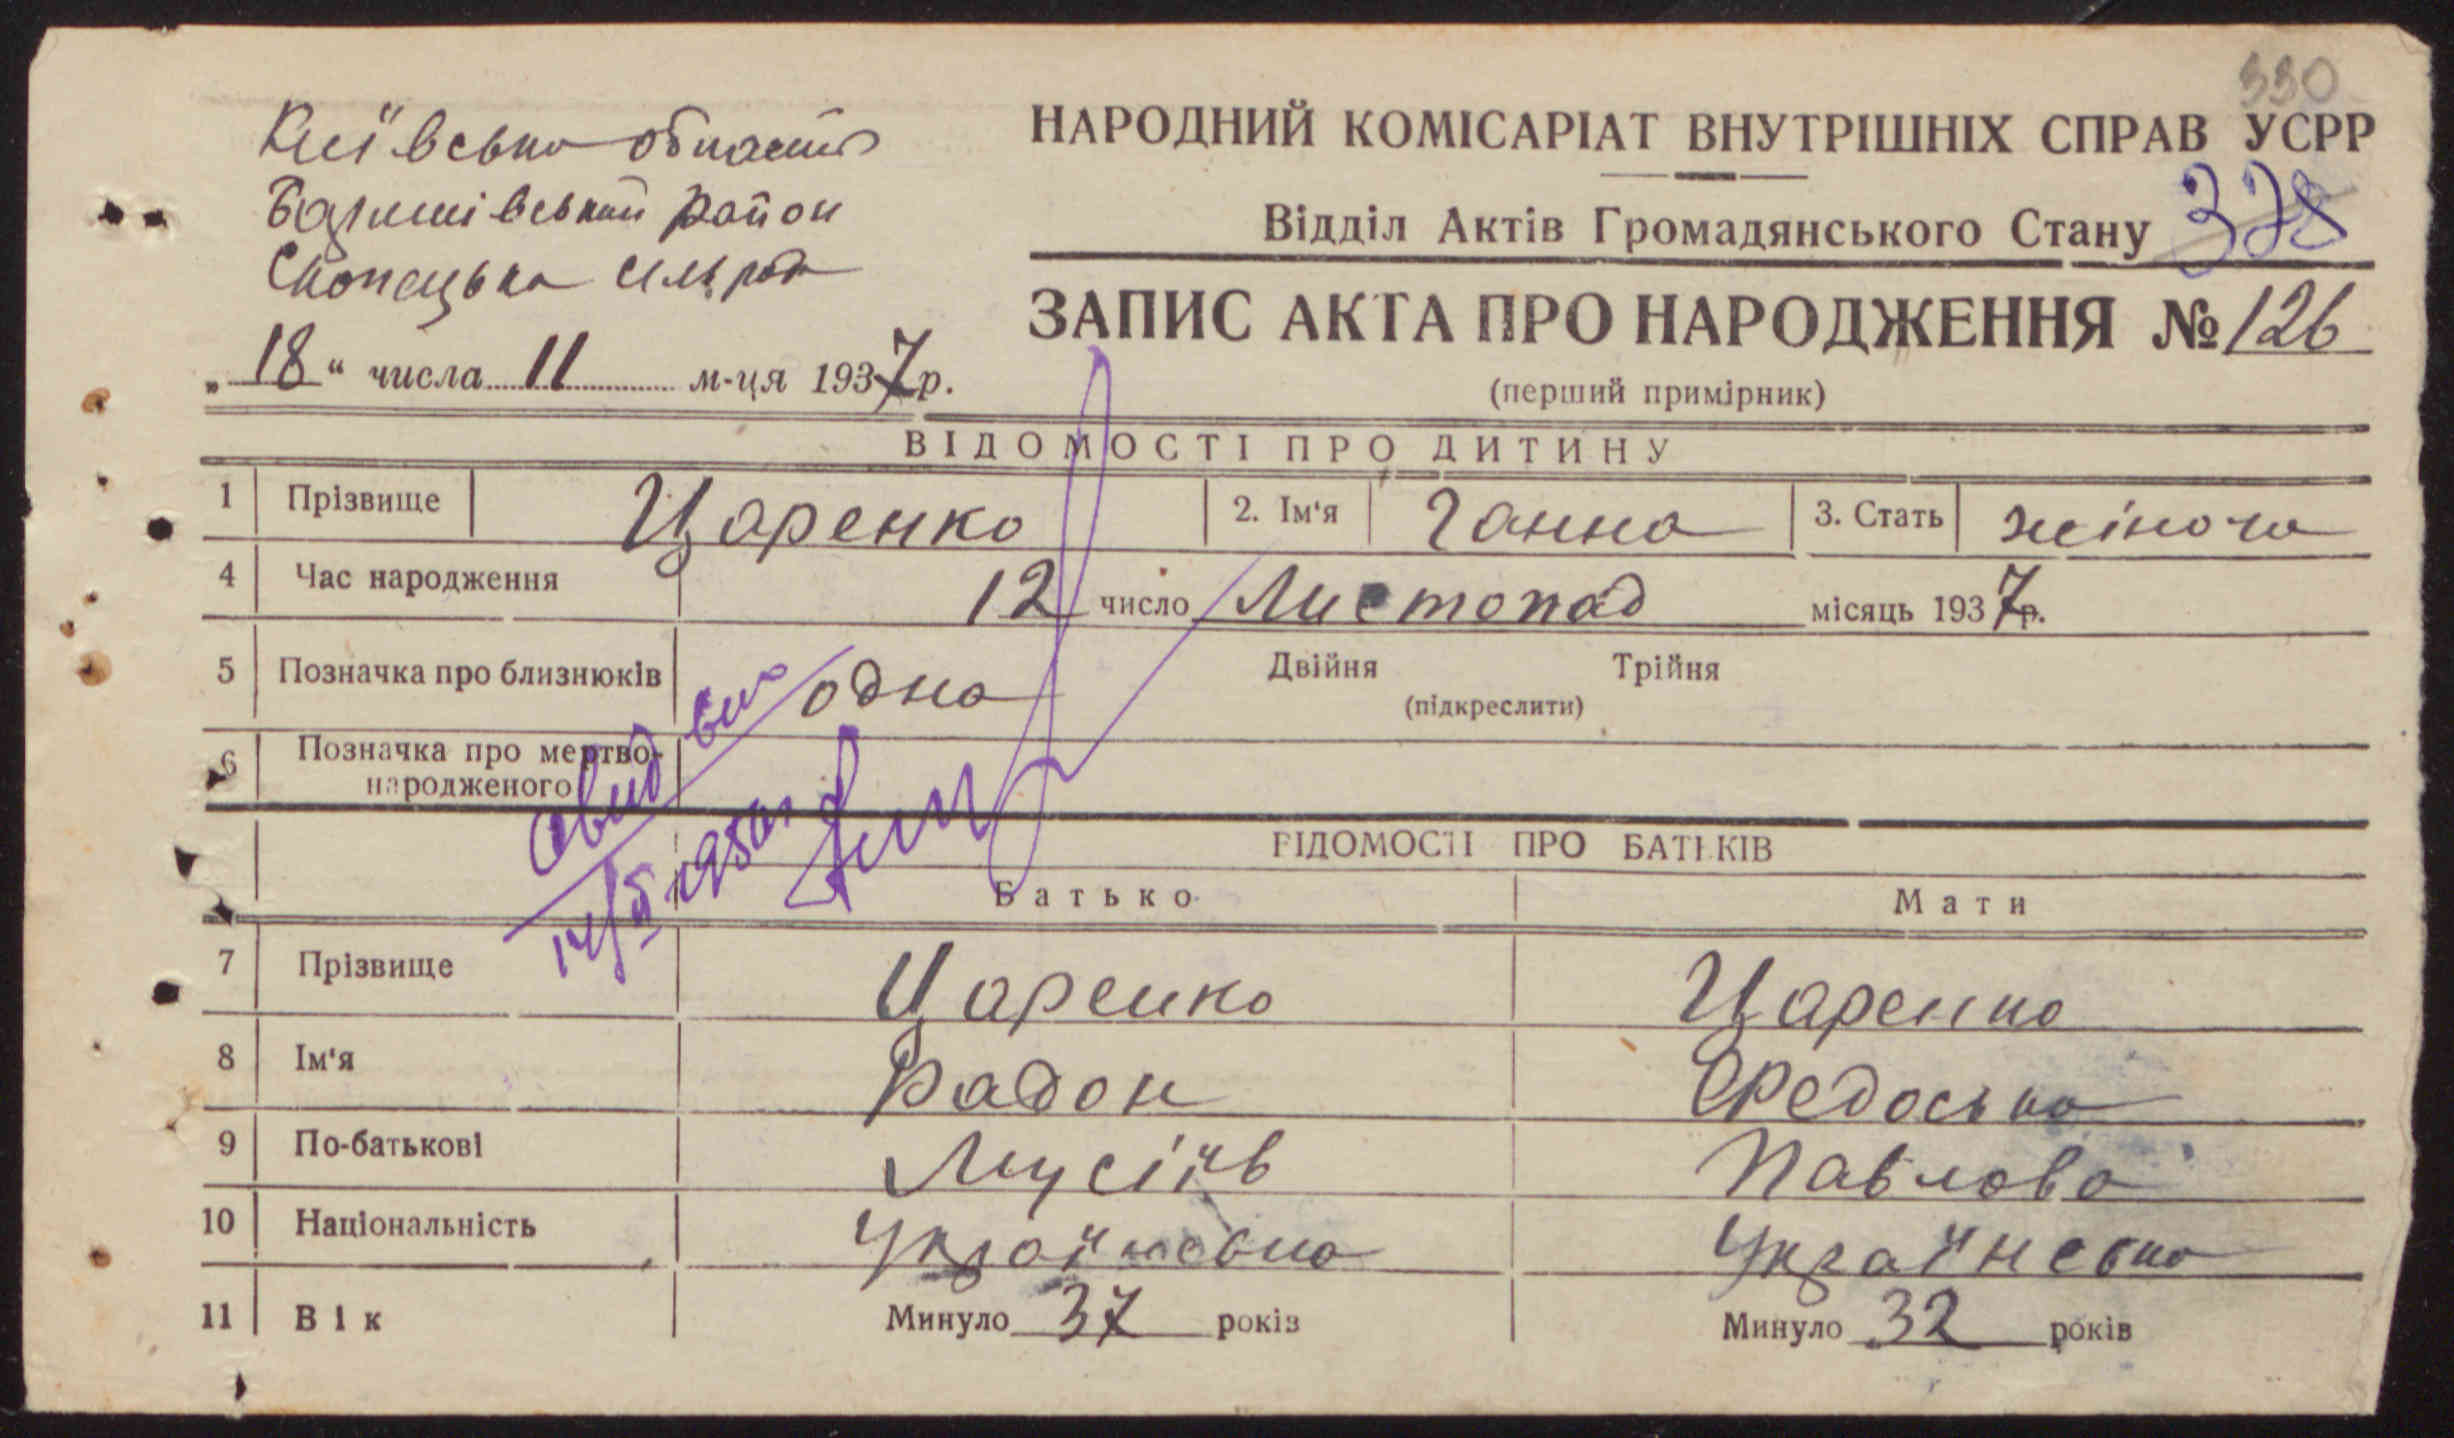 330
Київська область
Баришівський район
Скопецька сільрада
„18“ числа 11 м-ця 1937 р.
НАРОДНИЙ КОМІСАРІАТ ВНУТРІШНІХ СПРАВ УСРР
Відділ Актів Громадянського Стану 378
ЗАПИС АКТА ПРО НАРОДЖЕННЯ № 126
(перший примірник)
ВІДОМОСТІ ПРО ДИТИНУ
1 Прізвище Царенко 2. Ім'я Ганна 3. Стать жіноча
4 Час народження 12 число Листопад місяць 1937 р.
5 Позначка про близнюків одна Двійня Трійня
(підкреслити)
6 Позначка про мертво-
народженого
ВІДОМОСТІ ПРО БАТЬКІВ
Батько Мати
7 Прізвище Царенко Царенко
8 Ім'я Радон Федоська
9 По-батькові Мусіїв Павлова
10 Національність Українська Українська
11 Вік Минуло 37 років Минуло 32 років